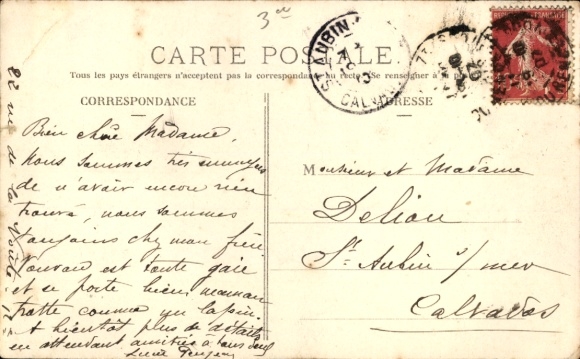 3
CARTE POSTALE
Tous les pays étrangers n'acceptent pas la correspondance au recto (Se renseigner à la poste)
CORRESPONDANCE
ADRESSE
Bien chère Madame,
Nous sommes très ennuyés
de n'avoir encore rien
trouvé, nous sommes
toujours chez mon frère
est toute gaie
et se porte bien, maman
trotte comme un lapin.
A bientôt plus de détails
en attendant amitiés à tous deux
Lucie
22 rue de la
Monsieur et Madame
Delion
St Aubin s/mer
Calvados
AUBIN
CALVADOS